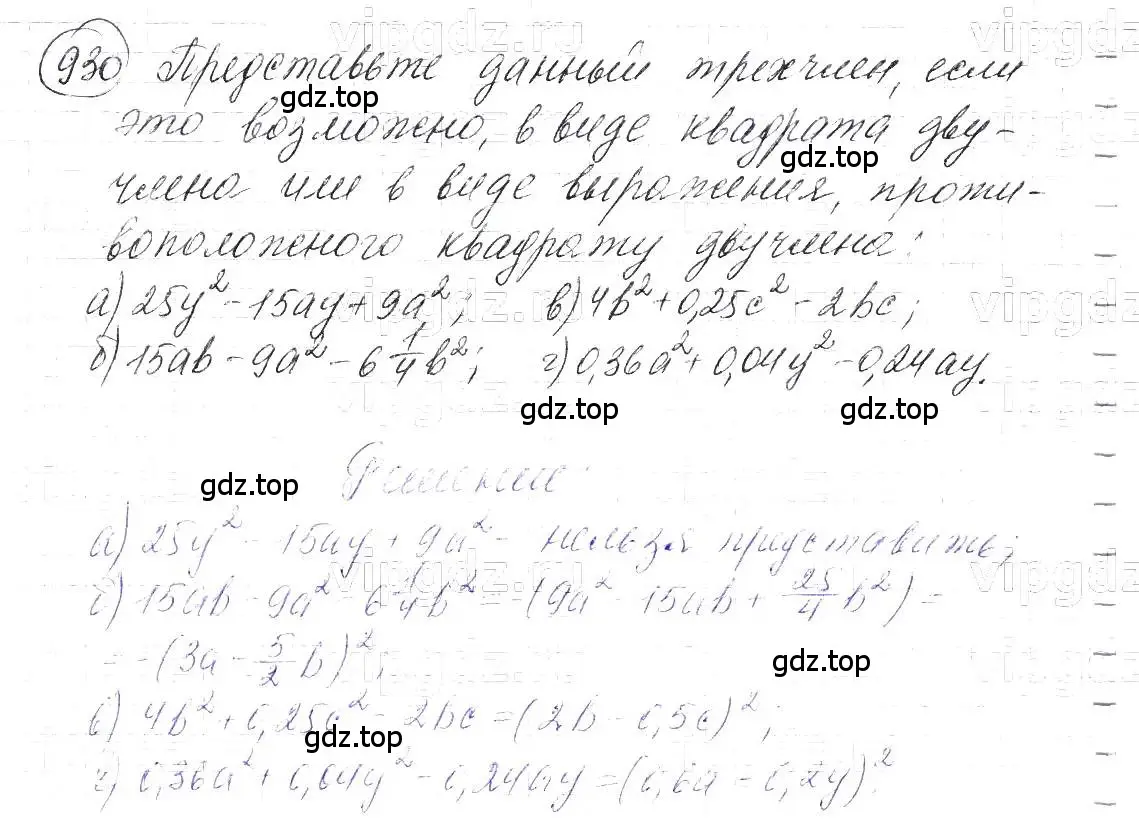 930 Представьте данный трехчлен, если
это возможно, в виде квадрата дву-
члена или в виде выражения, проти-
воположного квадрату двучлена:
а) 25y² - 15ay + 9a²; в) 4b² + 0,25c² - 2bc;
б) 15ab - 9a² - 6 1/4 b²; г) 0,36a² + 0,04y² - 0,24ay.
Решение:
а) 25y² - 15ay + 9a² - нельзя представить;
б) 15ab - 9a² - 6 1/4 b² = -(9a² - 15ab + 25/4 b²) =
= -(3a - 5/2 b)²;
в) 4b² + 0,25c² - 2bc = (2b - 0,5c)²;
г) 0,36a² + 0,04y² - 0,24ay = (0,6a - 0,2y)².
gdz.top
gdz.top
gdz.top
gdz.top
gdz.top
gdz.top
gdz.top
vipgdz.ru